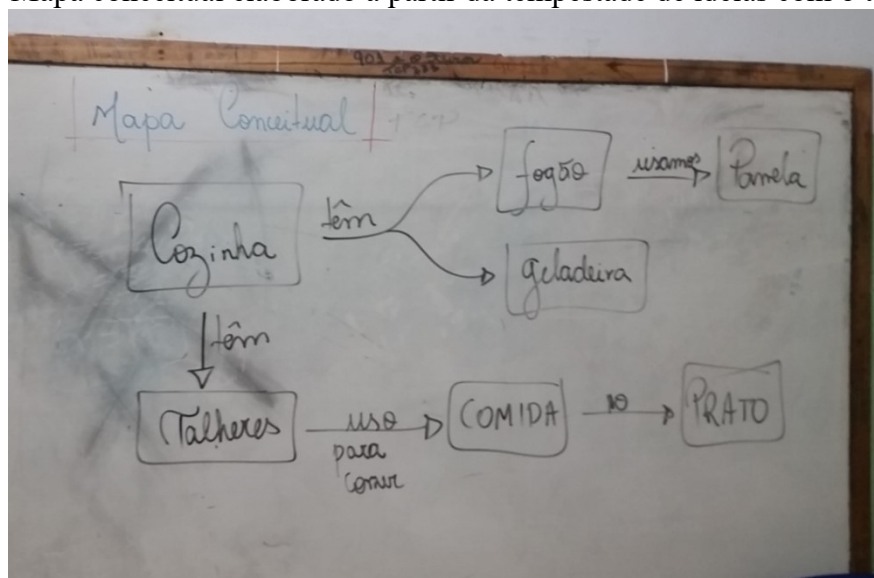 Mapa Conceitual
Cozinha
têm
fogão
usamos
Panela
geladeira
têm
Talheres
uso
para
comer
COMIDA
no
PRATO